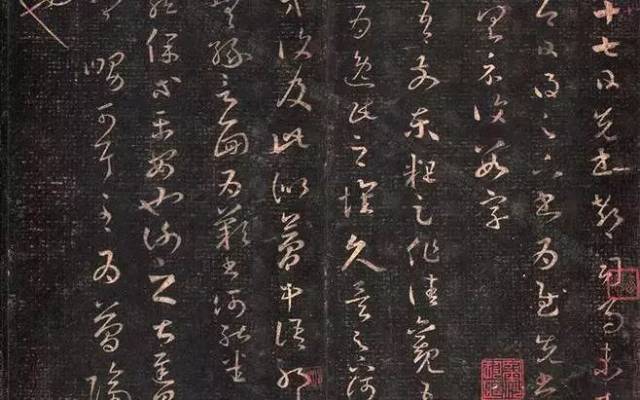 十七日先書郗司馬未
即日得足下書為慰先書
具示復數字
吾前東粗足作佳觀吾
為逸民之懷久矣足下何
方復及此似夢中語耶
無緣言面為歎書何能悉
龍保等平安也謝之甚遲見
卿舅可耳至為簡隔
也